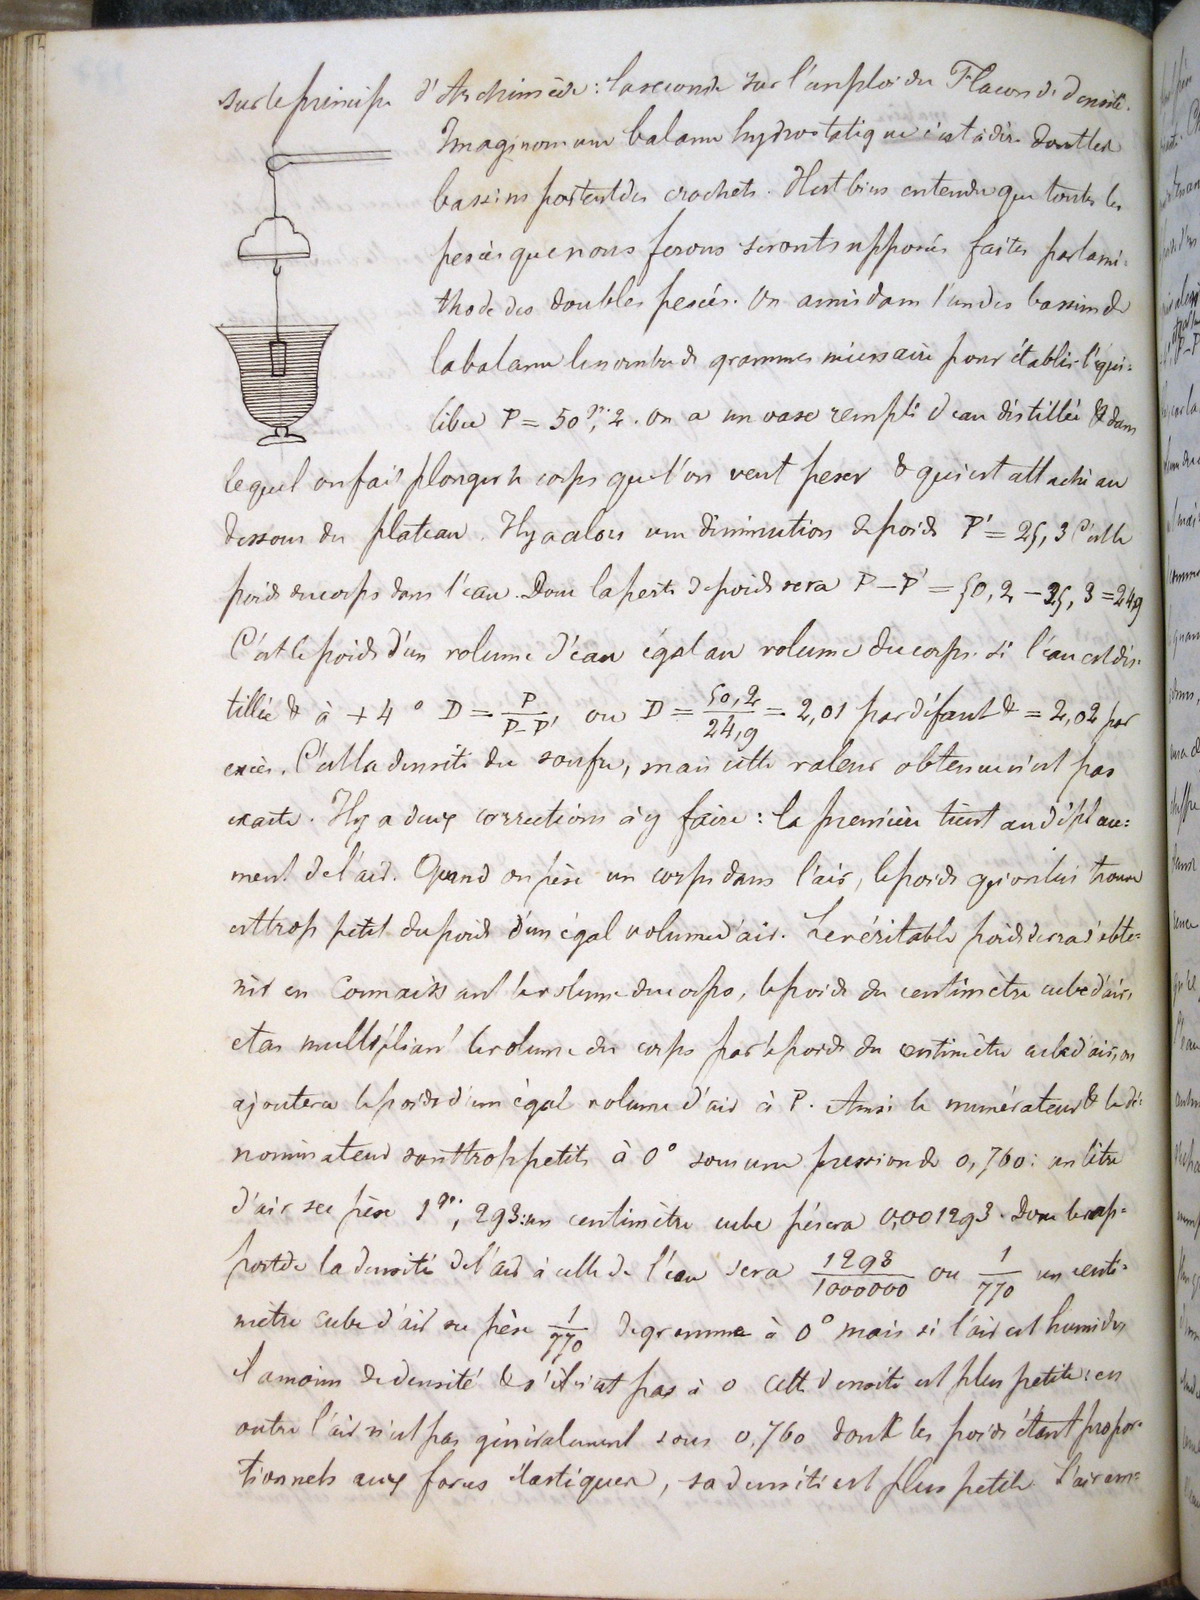 sur le principe d'Archimède : la seconde sur l'emploi du Flacon de densité.
Imaginons une balance hydrostatique c'est à dire dont les
bassins portent des crochets. Il est bien entendu que toutes les
pesées que nous ferons seront supposées faites par la mé=
thode des doubles pesées. On a mis dans l'un des bassins de
la balance le nombre de grammes nécessaire pour établir l'équi=
libre P = 50gr,2. On a un vase rempli d'eau distillée & dans
lequel on fait plonger le corps que l'on veut peser & qui est attaché au
dessous du plateau. Il y a alors une diminution de poids P' = 25,3 C'est le
poids du corps dans l'eau. Donc la perte de poids sera P - P' = 50,2 - 25,3 = 24,9
C'est le poids d'un volume d'eau égal au volume du corps. si l'eau est dis=
tillée & à +4° D = P/P-P' ou D = 50,2/24,9 = 2,01 par défaut & = 2,02 par
excès. C'est la densité du soufre, mais cette valeur obtenue n'est pas
exacte. Il y a deux corrections à y faire : la première tient au déplace=
ment de l'air. Quand on pèse un corps dans l'air, le poids qu'on lui trouve
est trop petit du poids d'un égal volume d'air. Le véritable poids devra s'obte=
nir en connaissant le volume du corps, le poids du centimètre cube d'air,
et en multipliant le volume du corps par le poids du centimètre cube d'air, on
ajoutera le poids d'un égal volume d'air à P. Ainsi le numérateur & le dé=
nominateur sont trop petits à 0° sous une pression de 0,760 : un litre
d'air sec pèse 1gr.,293 : un centimètre cube pésera 0,001293. Donc le rap=
port de la densité de l'air à celle de l'eau sera 1293/1000000 ou 1/770 un centi=
mètre cube d'air sec pèse 1/770 de gramme à 0° mais si l'air est humide
il a moins de densité & s'il n'est pas à 0 cette densité est plus petite : en
outre l'air n'est pas généralement sous 0,760 dont les poids étant propor=
tionnels aux forces élastiques, sa densité est plus petite L'air em=